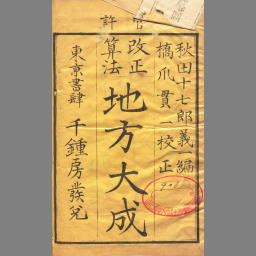 官許
秋田十七郎義一編
橋爪貫一校正
改正
算法
地方大成
東京書肆 千鍾房發兌